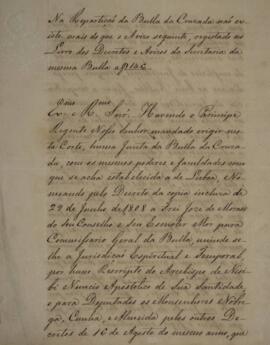 Na Repartição da Bulla da Cruzada não ex
iste mais do que o Aviso seguinte, registado no
Livro dos Decretos e Avisos da Secretaria da
mesma Bulla a
Havendo o Principe
Regente Nosso Senhor mandado erigir nes
ta Corte, huma Junta da Bulla da Cruza
da, com os mesmos poderes e faculdades com
que se acha estabelecida a de Lisboa, No
meando pelo Decreto da copia incluza de
29 de Junho de 1808 a Frei Jose de Moraes
do Seu Conselho e Seu Esmoler Mor para
Commissario Geral da Bulla, unindo se
lhe a Jurisdicao Espiritual e Temporal,
por hum Rescripto do Arcebispo de Nisi
bi Nuncio Apostolico de Sua Santidade,
e para Deputados os Monsenhores Nobre
ga, Cunha, e Almeida pelos outros De
cretos de 16 de Agosto do mesmo anno, que